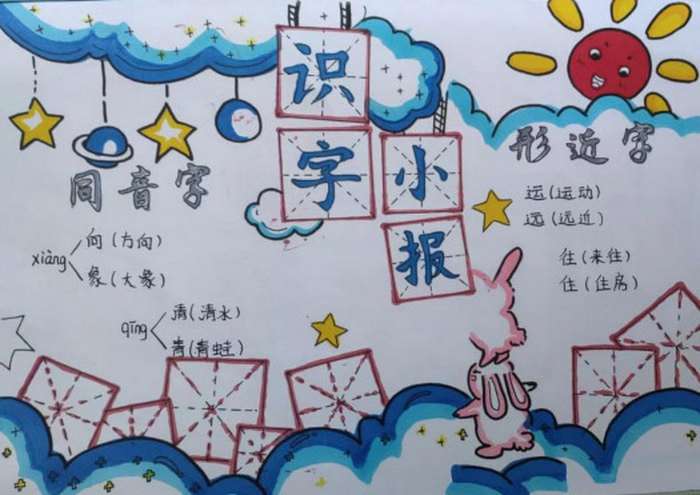 识
字
小
报
同音字
xiàng
向(方向)
象(大象)
qīng
清(清水)
青(青蛙)
形近字
运(运动)
远(远近)
往(来往)
住(住房)